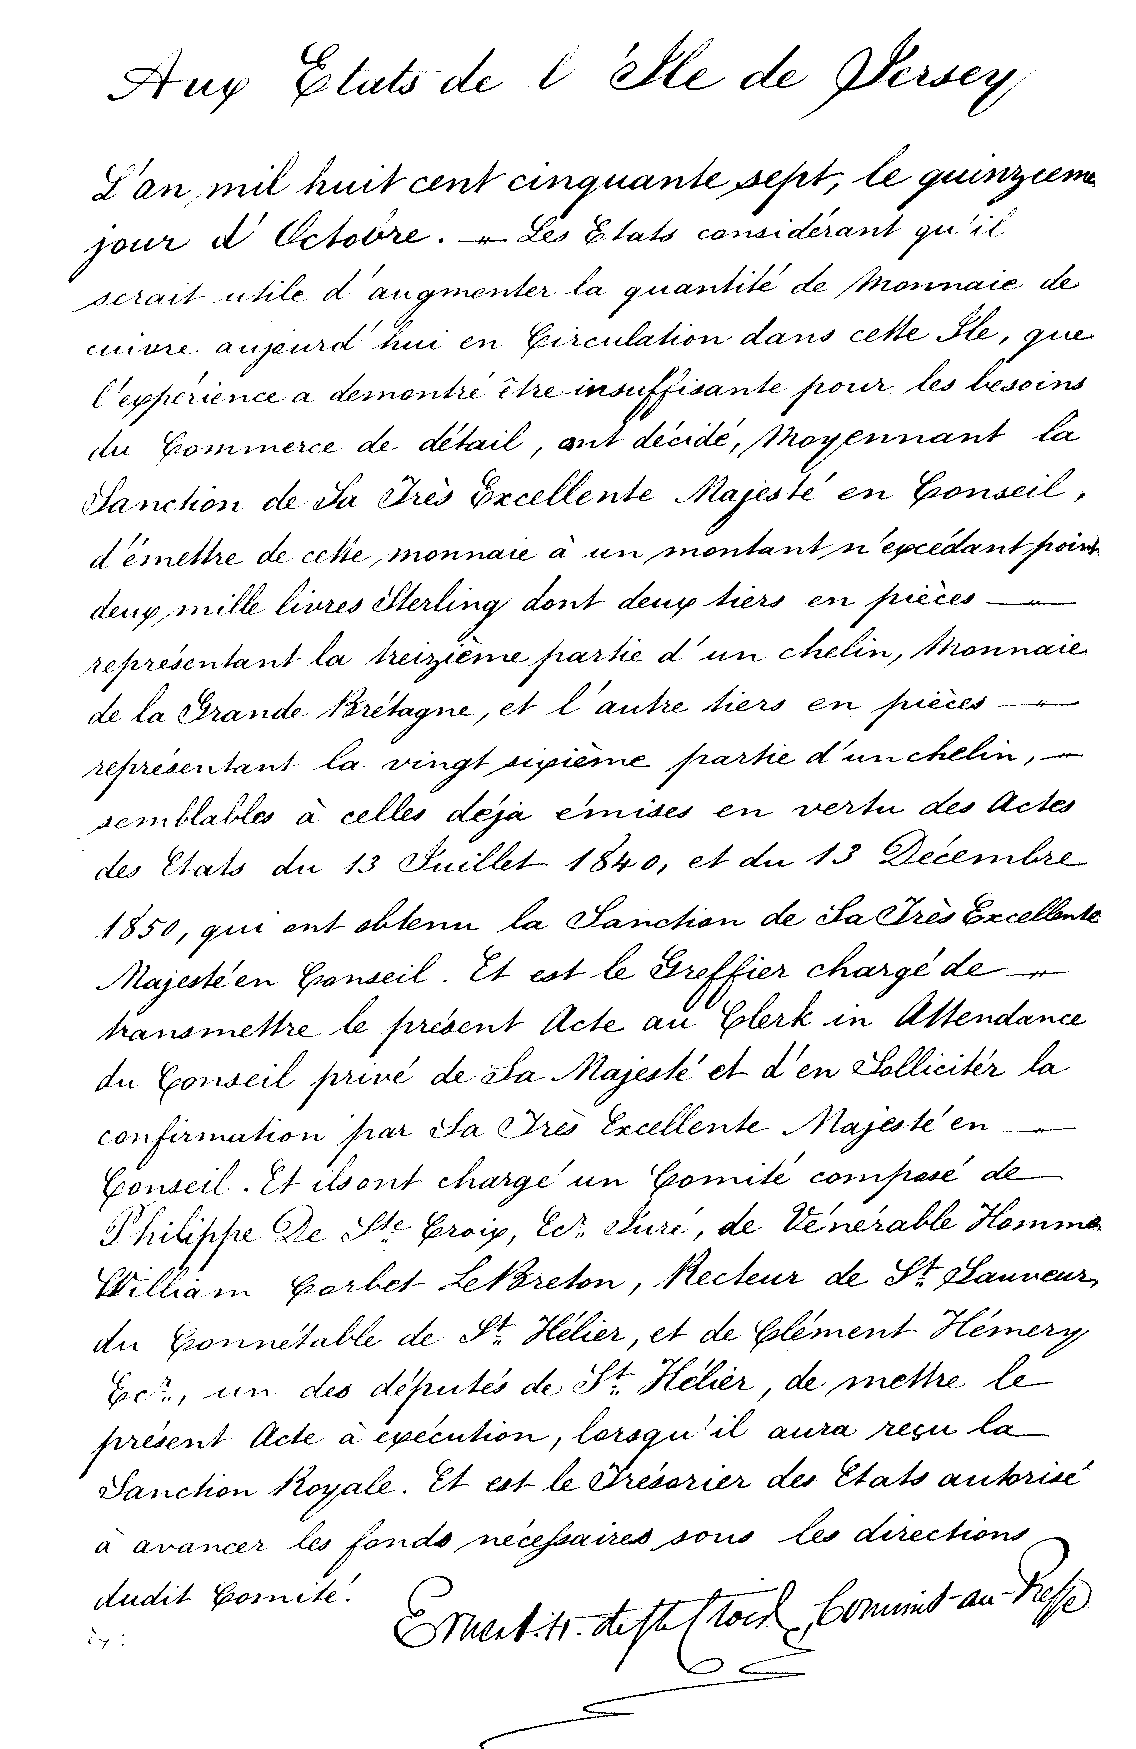 Aux Etats de l'Ile de Jersey
L'an mil huit cent cinquante sept, le quinzieme
jour d'Octobre. — Les Etats considérant qu'il
serait utile d'augmenter la quantité de Monnaie de
cuivre aujourd'hui en Circulation dans cette Ile, que
l'expérience a demontré être insuffisante pour les besoins
du Commerce de détail, ont décidé, Moyennant la
Sanction de Sa Très Excellente Majesté en Conseil,
d'émettre de cette monnaie à un montant n'excédant point
deux mille livres Sterling dont deux tiers en pièces —
représentant la treizième partie d'un chelin, Monnaie
de la Grande Brétagne, et l'autre tiers en pièces —
représentant la vingt sixième partie d'un chelin, —
semblables à celles déja émises en vertu des Actes
des Etats du 13 Juillet 1840, et du 13 Décembre
1850, qui ont obtenu la Sanction de Sa Très Excellente
Majesté en Conseil. Et est le Greffier chargé de —
transmettre le présent Acte au Clerk in Attendance
du Conseil privé de Sa Majesté et d'en Sollicitér la
confirmation par Sa Très Excellente Majesté en —
Conseil. Et ils ont chargé un Comité composé de
Philippe De Ste Croix, Ecr. Juré, de Vénérable Homme
William Corbet LeBreton, Recteur de St. Sauveur,
du Connétable de St. Hélier, et de Clément Hémery
Ecr., un des députés de St. Hélier, de mettre le
présent Acte à exécution, lorsqu'il aura reçu la
Sanction Royale. Et est le Trésorier des Etats autorisé
à avancer les fonds nécessaires sous les directions
dudit Comité.
Commis-au-Greffe